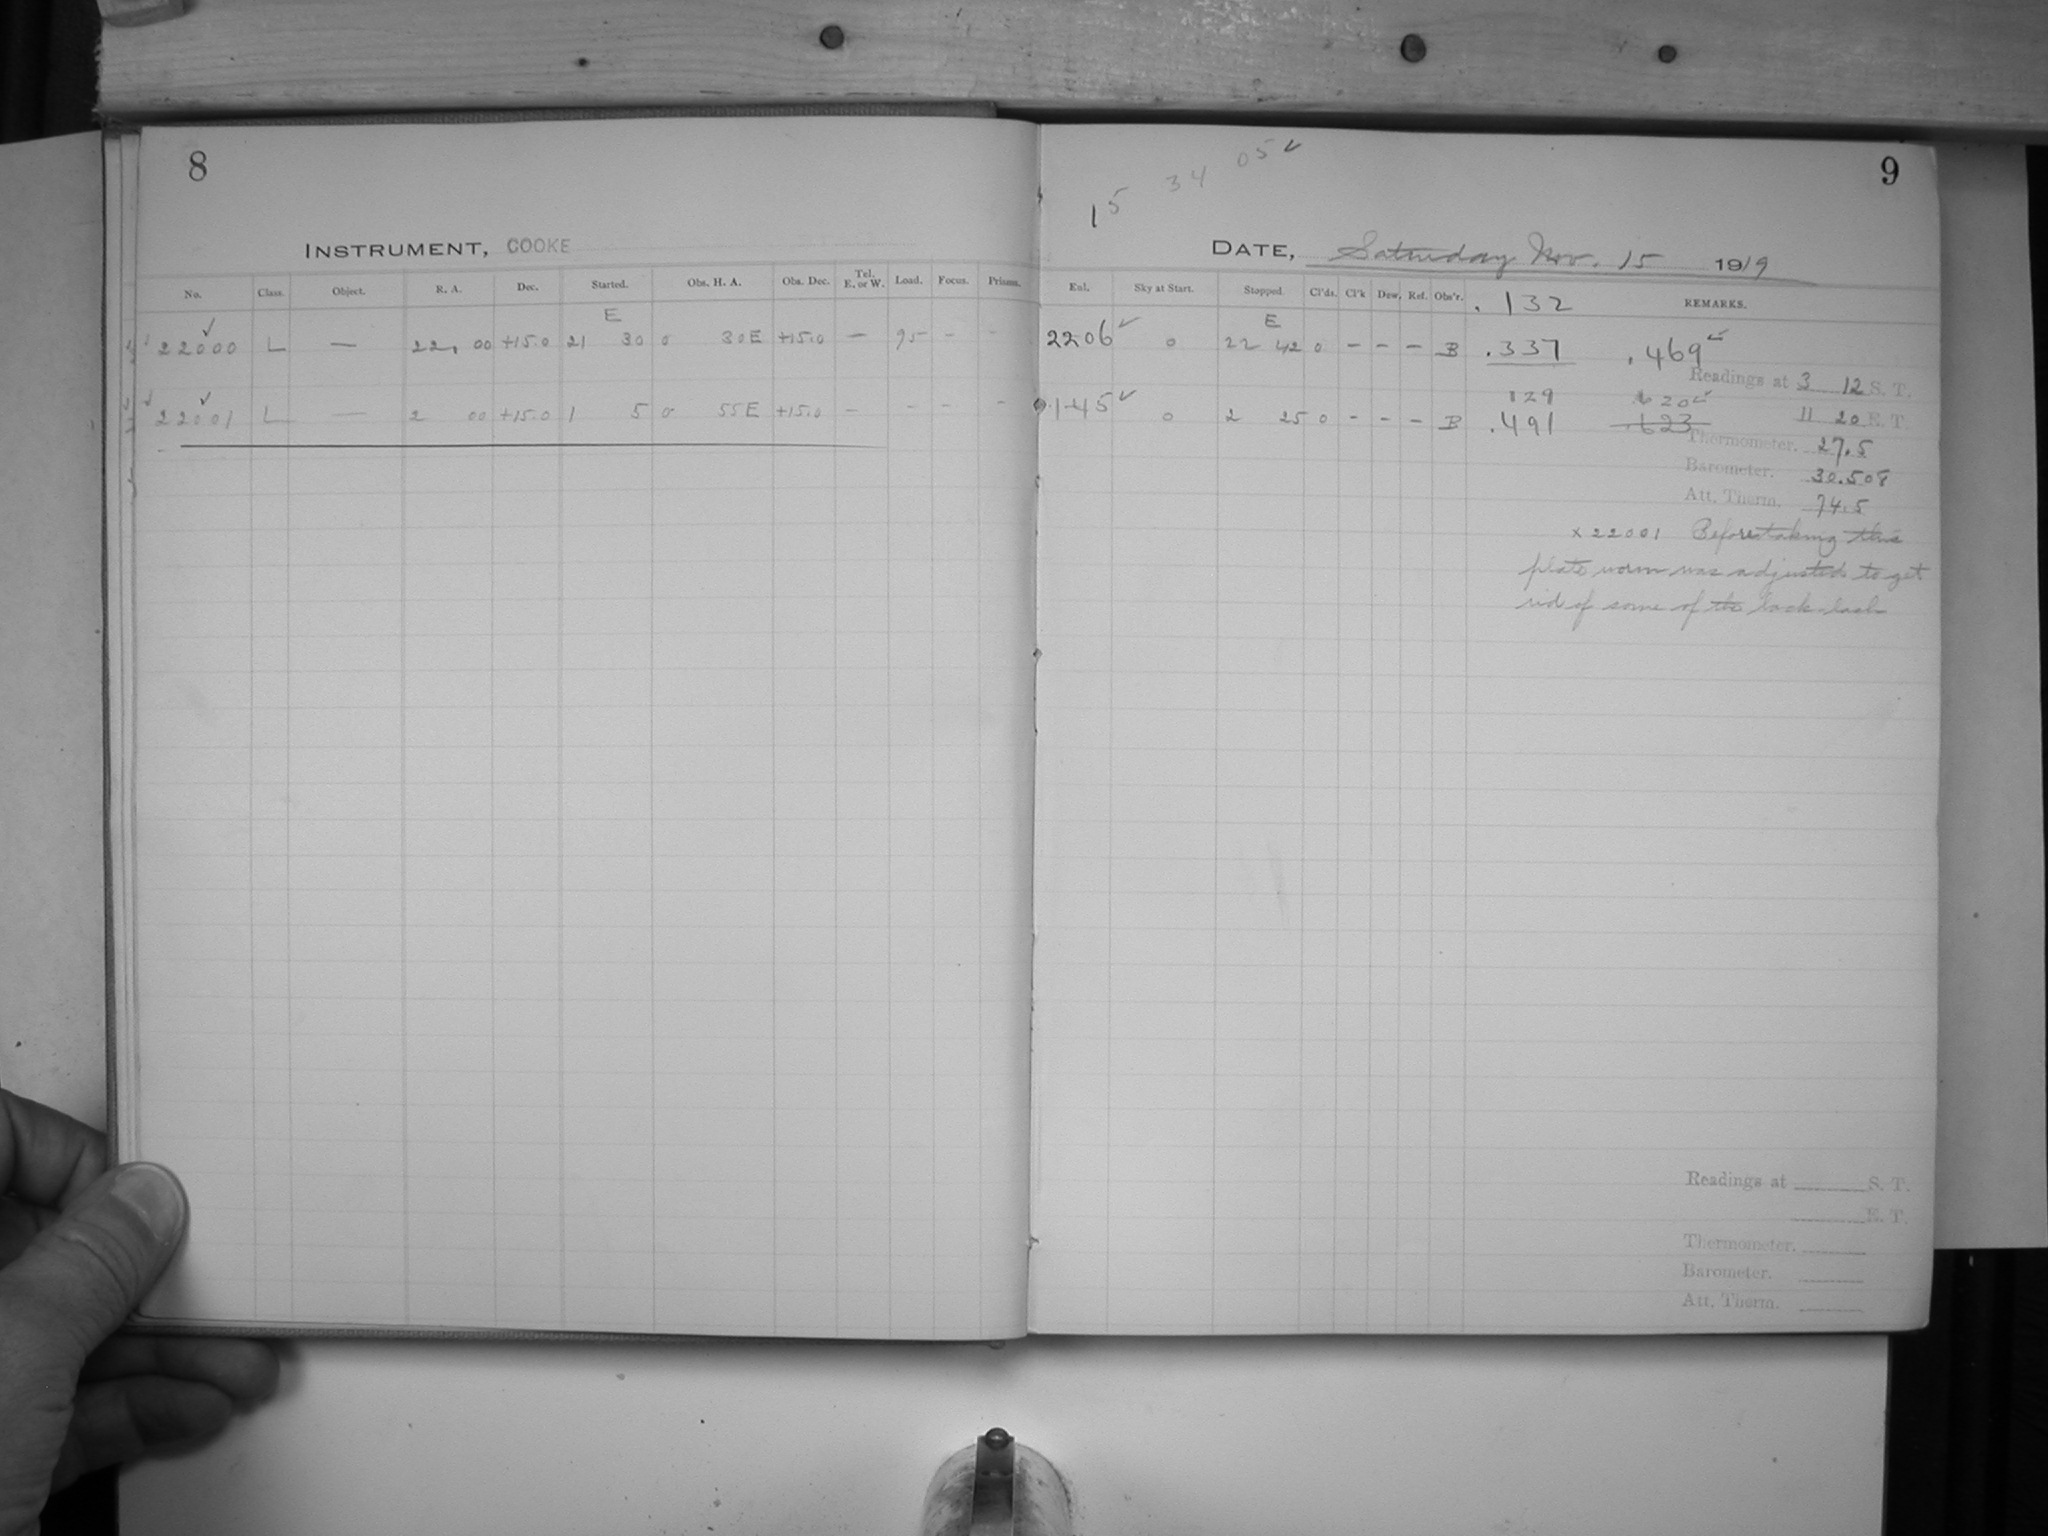 8
INSTRUMENT, COOKE
No. Class. Object. R. A. Dec. Started. Obs. H. A. Obs. Dec. Tel. E. or W. Load. Focus. Prisms.
E
22000 L — 22 00 +15.0 21 30 0 30E +15.0 — 95 - -
22001 L — 2 00 +15.0 1 5 0 55E +15.0 — - - -
9
15 34 05 ✓
DATE, Saturday Nov. 15 1919
Exl. Sky at Start. Stopped. Cl'ds. Cl'k Dew. Ref. Obs'r. .132 REMARKS.
E
2206 ✓ 0 22 42 0 - - - B .337 .469 ✓
Readings at 3 12 S. T.
129 620 ✓
145 ✓ 0 2 25 0 - - - B .491 .623 11 20 E. T.
Thermometer. 27.5
Barometer. 30.508
Att. Therm. 74.5
x 22001 Before taking this
plate worm was adjusted to get
rid of some of the back lash
Readings at S. T.
E. T.
Thermometer.
Barometer.
Att. Therm.